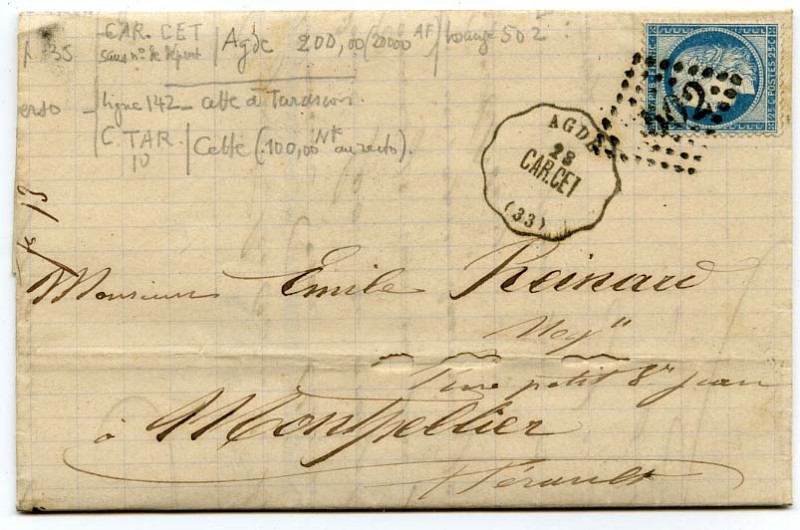 CAR. CET
sans n° de dépent
Agde 200,00 (20000 AF) losange 502
ligne 142 - Cette à Tarascon
C TAR
10
Cette (100,00 NF au recto).
REPUB FRANC
25 C POSTES 25 C
AGDE
28
CAR.CET
(33)
Monsieur Emile Reinard
Neg^t
Rue petit S^t Jean
à Montpellier
Hérault